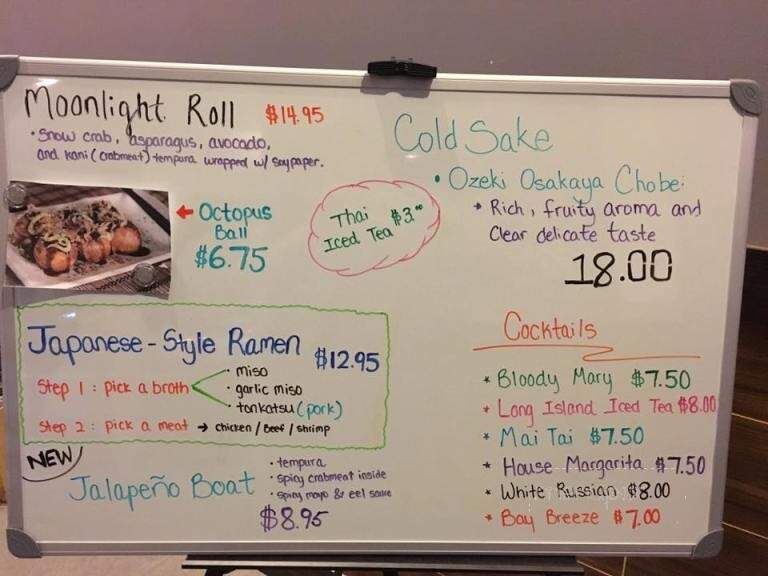 Moonlight Roll $14.95
• Snow crab, asparagus, avocado,
and kani (crabmeat) tempura wrapped w/ soypaper.
← Octopus
Ball
$6.75
Thai
Iced Tea $3.00
Japanese-Style Ramen $12.95
Step 1: pick a broth
• miso
• garlic miso
• tonkatsu (pork)
Step 2: pick a meat → chicken / Beef / shrimp
NEW
Jalapeño Boat
• tempura
• spicy crabmeat inside
• spicy mayo & eel sauce
$8.95
Cold Sake
• Ozeki Osakaya Chobe:
* Rich, fruity aroma and
Clear delicate taste
18.00
Cocktails
* Bloody Mary $7.50
* Long Island Iced Tea $8.00
* Mai Tai $7.50
* House Margarita $7.50
* White Russian $8.00
* Bay Breeze $7.00